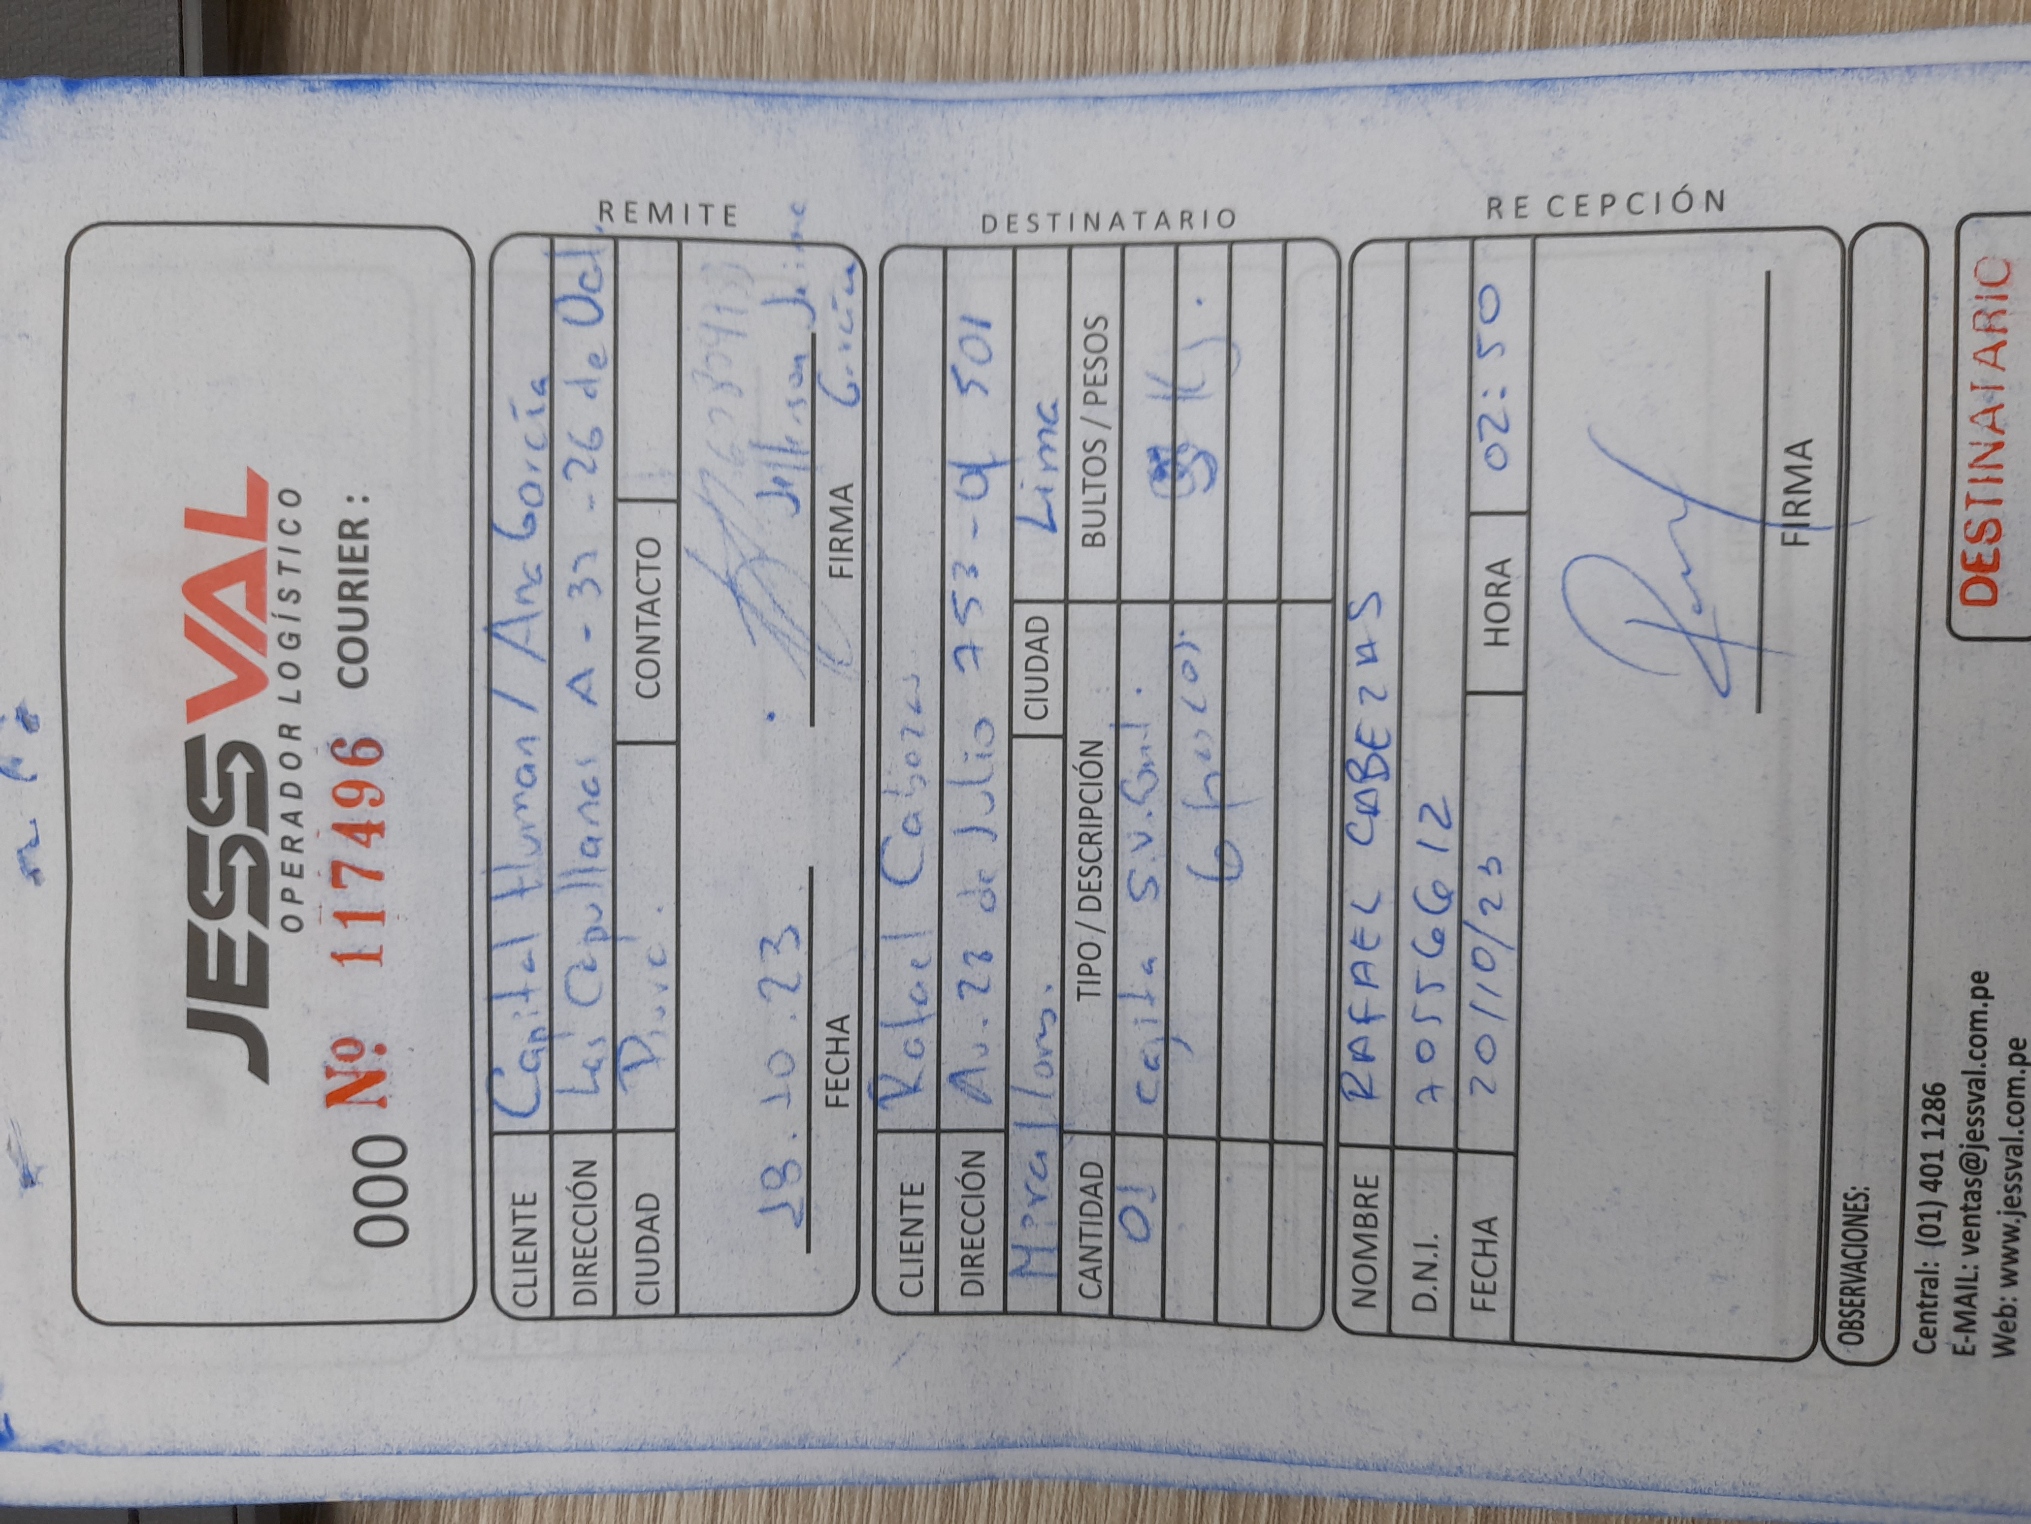 JESSVAL
OPERADOR LOGÍSTICO
000 Nº 117496 COURIER :
CLIENTE Capital Human / Ana García
DIRECCIÓN Las Capullanas A - 32 - 26 de Oct.
CIUDAD Piura. CONTACTO
REMITE
Jefferson Jaime
García
FECHA .10.23 FIRMA
CLIENTE Rafael Cabezas
DIRECCIÓN Av. 28 de Julio 753 - Of 501
Miraflores. CIUDAD Lima
DESTINATARIO
CANTIDAD TIPO / DESCRIPCIÓN BULTOS / PESOS
01 cajita S.V.
6 frascos. Kg.
NOMBRE RAFAEL CABEZAS
D.N.I. 70556612
FECHA 20/10/23 HORA 02:50
RECEPCIÓN
FIRMA
OBSERVACIONES:
Central: (01) 401 1286
E-MAIL: ventas@jessval.com.pe
Web: www.jessval.com.pe
DESTINATARIO